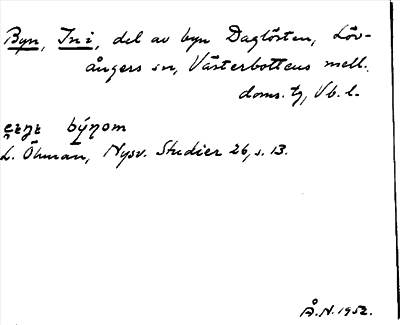 Byn, In i, del av byn Daglösten, Löv-
ångers sn, Västerbottens mell.
doms. tg, Vb. l.
býnom
L. Öhman, Nysv. Studier 26, s. 13.
Å. N. 1952.